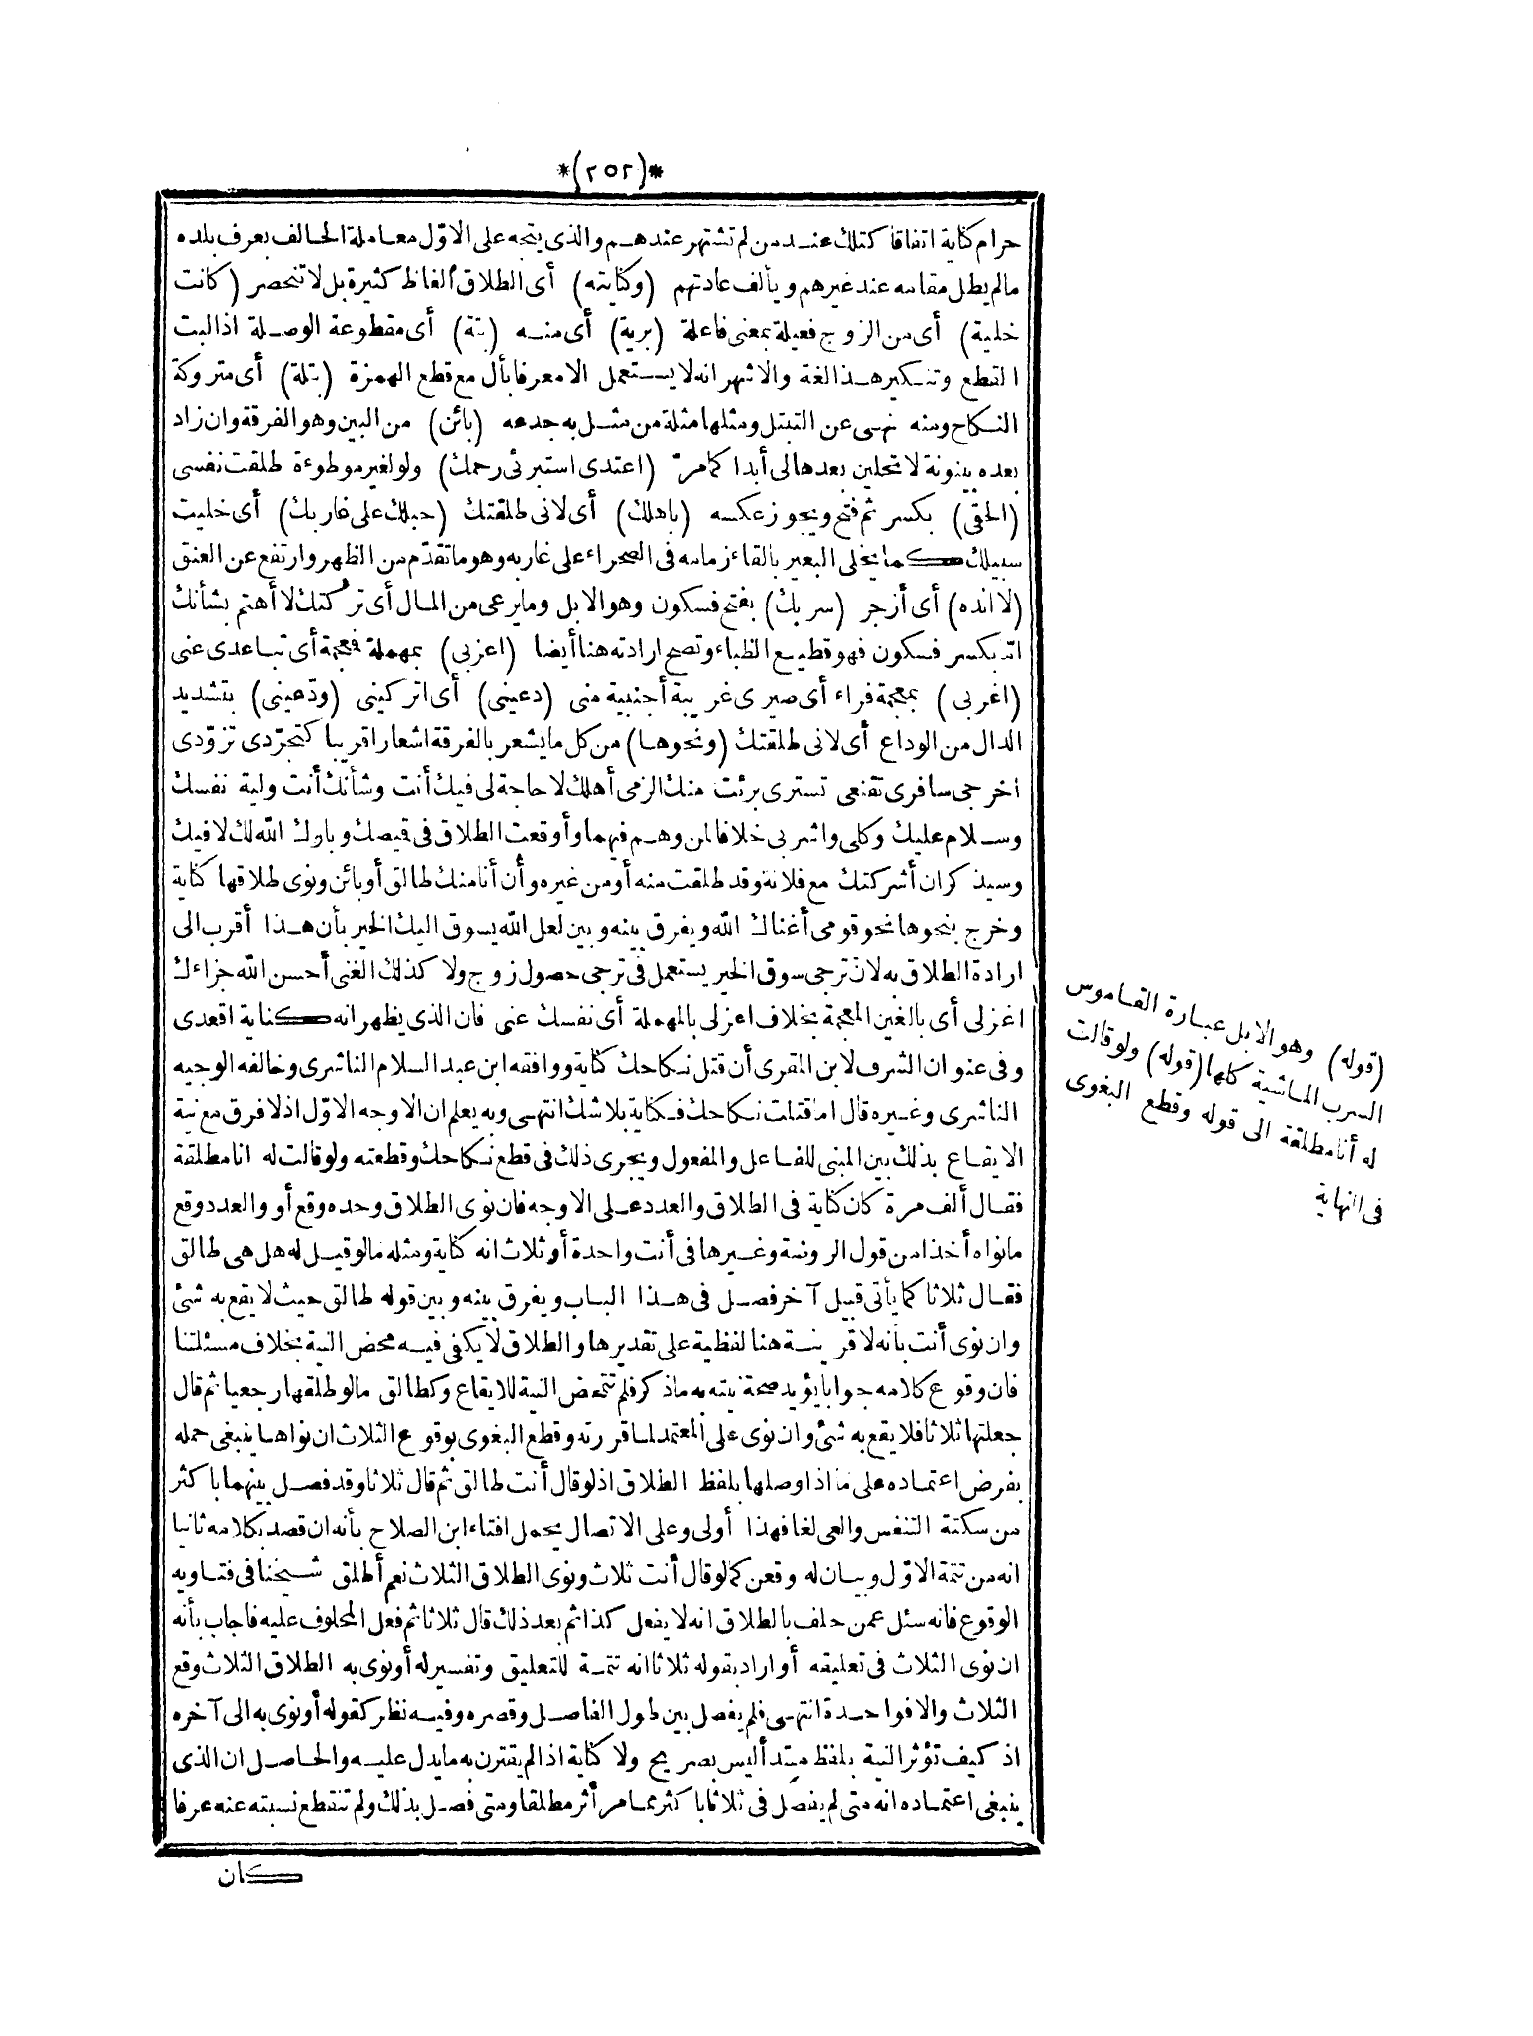 *(٢٥٢)*
حرام كناية اتفاقا كتلك عند من لم تشتهر عندهم والذى يتجه على الاوّل معاملة الحالف بعرف بلده
مالم يطل مقامه عند غيرهم و يألف عادتهم (وكنايته) أى الطلاق ألفاظ كثيرة بل لا تنحصر (كانت
خلية) أى من الزوج فعيلة بمعنى فاعلة (برية) أى منه (بتة) أى مقطوعة الوصلة اذ البت
القطع وتنكير هذا لغة والاشهر انه لا يستعمل الا معرفا بأل مع قطع الهمزة (بتلة) أى متروكة
النكاح ومنه نهى عن التبتل ومثلها مثلة من مثل به جدعه (بائن) من البين وهو الفرقة وان زاد
بعده بينونة لا تحلين بعدها لى أبدا كمامرّ (اعتدى استبرئى رحمك) ولو لغير موطوءة طلقت نفسى
(الحقى) بكسر ثم فتح ويجوز عكسه (باهلك) أى لانى طلقتك (حبلك على غاربك) أى خليت
سبيلك كما يخلى البعير بالقاء زمامه فى الصحراء على غاربه وهو ما تقدّم من الظهر وارتفع عن العنق
(لا انده) أى أزجر (سربك) بفتح فسكون وهو الابل وما يرعى من المال أى تركتك لا أهتم بشأنك
امّا بكسر فسكون فهو قطيع الظباء وتصح ارادته هنا أيضا (اعزبى) بمهملة فمعجمة أى تباعدى عنى
(اغربى) بمعجمة فراء أى صيرى غريبة أجنبية منى (دعينى) أى اتركينى (ودّعينى) بتشديد
الدال من الوداع أى لانى طلقتك (ونحوها) من كل ما يشعر بالفرقة اشعارا قريبا كتجرّدى تزوّدى
اخرجى سافرى تقنعى تسترى برئت منك الزمى أهلك لا حاجة لى فيك أنت وشأنك أنت ولية نفسك
وسلام عليك وكلى واشربى خلافا لمن وهم فيهما وأوقعت الطلاق فى قميصك وبارك الله لك لا فيك
وسيذكر ان أشركتك مع فلانة وقد طلقت منه أو من غيره وأن أنا منك طالق أو بائن ونوى طلاقها كناية
وخرج بنحوها نحو قومى أغناك الله ويفرق بينه وبين لعل الله يسوق اليك الخير بأن هذا أقرب الى
ارادة الطلاق به لانّ ترجى سوق الخير يستعمل فى ترجى حصول زوج ولا كذلك الغنى أحسن الله جزاءك
اغزلى أى بالغين المعجمة بخلاف اعزلى بالمهملة أى نفسك عنى فان الذى يظهر انه كناية اقعدى
وفى عنوان الشرف لابن المقرى أن قتل نكاحك كناية ووافقه ابن عبد السلام الناشرى وخالفه الوجيه
الناشرى وغيره قال اما قتلت نكاحك فكناية بلا شك انتهى وبه يعلم ان الاوجه الاوّل اذ لا فرق مع نية
الايقاع بذلك بين المبنى للفاعل والمفعول ويجرى ذلك فى قطع نكاحك وقطعته ولو قالت له انا مطلقة
فقال ألف مرة كان كناية فى الطلاق والعدد على الاوجه فان نوى الطلاق وحده وقع أو والعدد وقع
ما نواه أخذا من قول الروضة وغيرها فى أنت واحدة أو ثلاث انه كناية ومثله ما لو قيل له هل هى طالق
فقال ثلاثا كما يأتى قبيل آخر فصل فى هذا الباب ويفرق بينه وبين قوله طالق حيث لا يقع به شئ
وان نوى أنت بأنه لا قرينة هنا لفظية على تقديرها والطلاق لا يكفى فيه محض النية بخلاف مسئلتنا
فان وقوع كلامه جوابا يؤيد صحة نيته به ما ذكر فلم تتمحض النية للايقاع وكطالق ما لو طلقها رجعيا ثم قال
جعلتها ثلاثا فلا يقع به شئ وان نوى على المعتمد لما قررته وقطع البغوى بوقوع الثلاث ان نواها ينبغى حمله
بفرض اعتماده على ما اذا وصلها بلفظ الطلاق اذ لو قال أنت طالق ثم قال ثلاثا وقد فصل بينهما باكثر
من سكتة التنفس والعى لغا فهذا أولى وعلى الاتصال يحمل افتاء ابن الصلاح بأنه ان قصد بكلامه ثانيا
انه من تتمة الاوّل وبيان له وقعن كما لو قال أنت ثلاث ونوى الطلاق الثلاث نعم أطلق شيخنا فى فتاويه
الوقوع فانه سئل عمن حلف بالطلاق انه لا يفعل كذا ثم بعد ذلك قال ثلاثا ثم فعل المحلوف عليه فاجاب بأنه
ان نوى الثلاث فى تعليقه أو اراد بقوله ثلاثا انه تتمة للتعليق وتفسير له أو نوى به الطلاق الثلاث وقع
الثلاث والا فواحدة انتهى فلم يفصل بين طول الفاصل وقصره وفيه نظر كقوله أو نوى به الى آخره
اذ كيف تؤثر النية بلفظ مبتدأ ليس بصريح ولا كناية اذا لم يقترن به ما يدل عليه والحاصل ان الذى
ينبغى اعتماده انه متى لم يفصل فى ثلاثا باكثر مما مر أثر مطلقا ومتى فصل بذلك ولم تنقطع نسبته عنه عرفا
كان
(قوله) وهو الابل عبارة القاموس
السرب الماشية كلها (قوله) ولو قالت
له أنا مطلقة الى قوله وقطع البغوى
فى النهاية